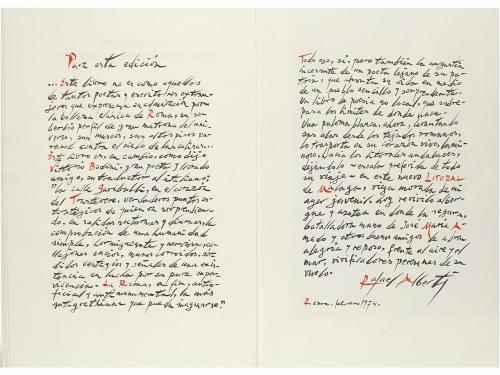 Para esta edición
... Este libro no es como aquellos
de tantos poetas y escritores extran-
jeros que expresaron su admiración por
la belleza clásica de Roma, su so-
berbio perfil de gran matrona del uni-
verso, sus museos, sus altos pinos
contra el cielo de
Este libro es, en cambio, como dijo
Vittorio Bodini, gran poeta y hondo
amigo, su traductor al italiano:
"la calle Garibaldi, en el corazón
del Trastevere, verdadero punto es-
tratégico de quien se ve sorprendien-
do, en rápidas vecturas y
comprobación de una humanidad
simple,
rones ancios, muros corroídos, sór-
didos vestigios y señales de una exis-
tencia en lucha por su pura super-
vivencia. La Roma, al fin, antio-
ficial y antimonumental, la más
antigoethiana que pueda imaginarse."
Todo eso, sí, pero también la angustia
incesante de un poeta lejano de su pa-
tria, que afronta su vida en medio
de un pueblo sencillo y sorprendente.
Un libro de poesía no local, que sobre-
pasa los límites de donde nace.
Una paloma blanca, ahora, levantando
sus alas desde los tejados romanos,
lo transporta en su corazón vivo, lumi-
noso, hacia los litorales andaluces,
dejándolo – escala respirada de todo
su viaje – en este nuevo Litoral
de Málaga, vieja morada de mi
ayer juvenil, hoy revivido alber-
gue y azotea en donde la segura,
batalladora mano de José María A-
mado y otros buenos amigos le dan
alegría y reposo, frente al aire y el
mar, vivificadores perennes de su
vuelo.
Rafael Alberti
Roma, febrero 1974.